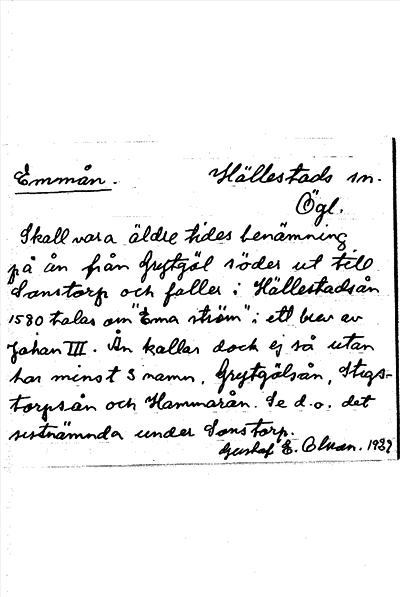 Emmån. Hällestads sn.
Ögl.
Skall vara äldre tides benämning
på ån från Grytgöl söder ut till
Sonstorp och faller i Hällestadsån
1580 talas om "Ema ström" i ett brev av
Johan III. Ån kallas dock ej så utan
har minst 3 namn, Grytgölsån, Stigs-
torpsån och Hammarån. Se d.o. det
sistnämnda under Sonstorp.
Gustaf E. Olsson. 1932